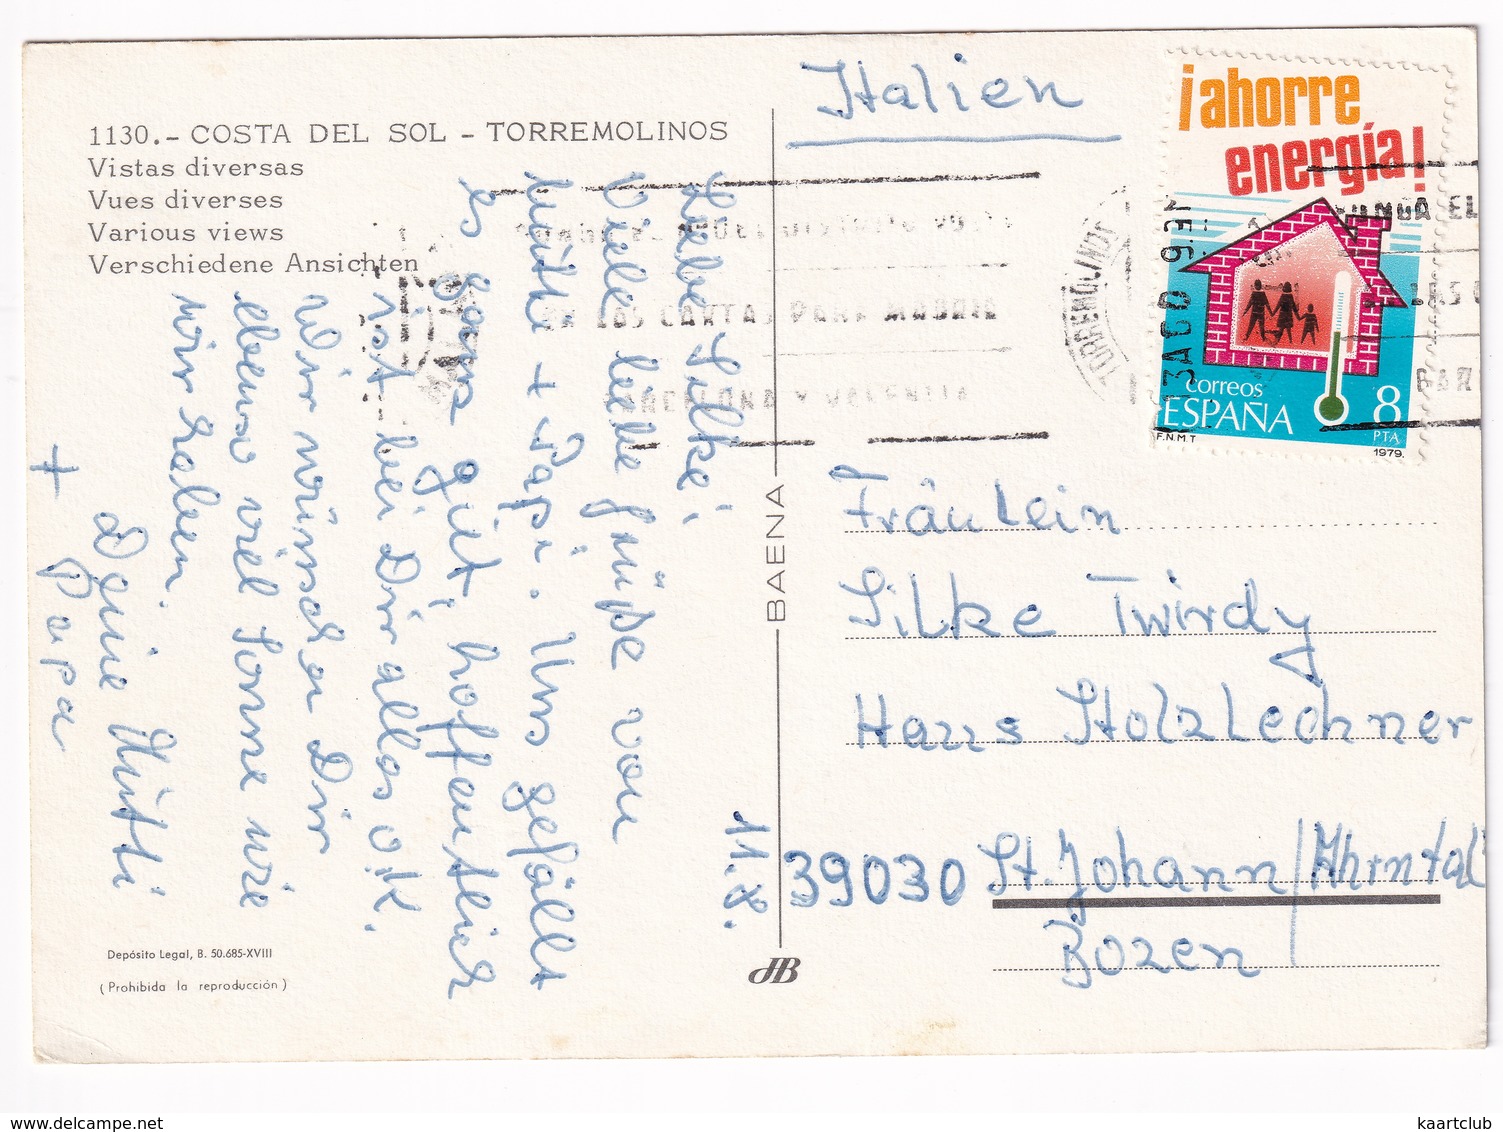 1130.- COSTA DEL SOL - TORREMOLINOS
Vistas diversas
Vues diverses
Various views
Verschiedene Ansichten
Italien
¡ahorre
energía!
correos
ESPAÑA
8
PTA
F.N.M.T
1979.
TORREMOLINOS
PONGA EL
EN LAS CARTAS PARA MADRID
BARCELONA Y VALENCIA
Liebe Silke,
Viele liebe Grüße von
Mutti + Papi. Uns gefällt
es ganz gut, hoffentlich
ist bei Dir alles o.K.
Wir wünschen Dir
ebenso viel Sonne wie
wir haben.
Deine Mutti
+ Papa
11.8.
BAENA
Fräulein
Silke Twirdy
Haus Stolzlechner
39030 St. Johann/Ahrntal
Bozen
Depósito Legal, B. 50.685-XVIII
(Prohibida la reproducción)
JB
kaartclub